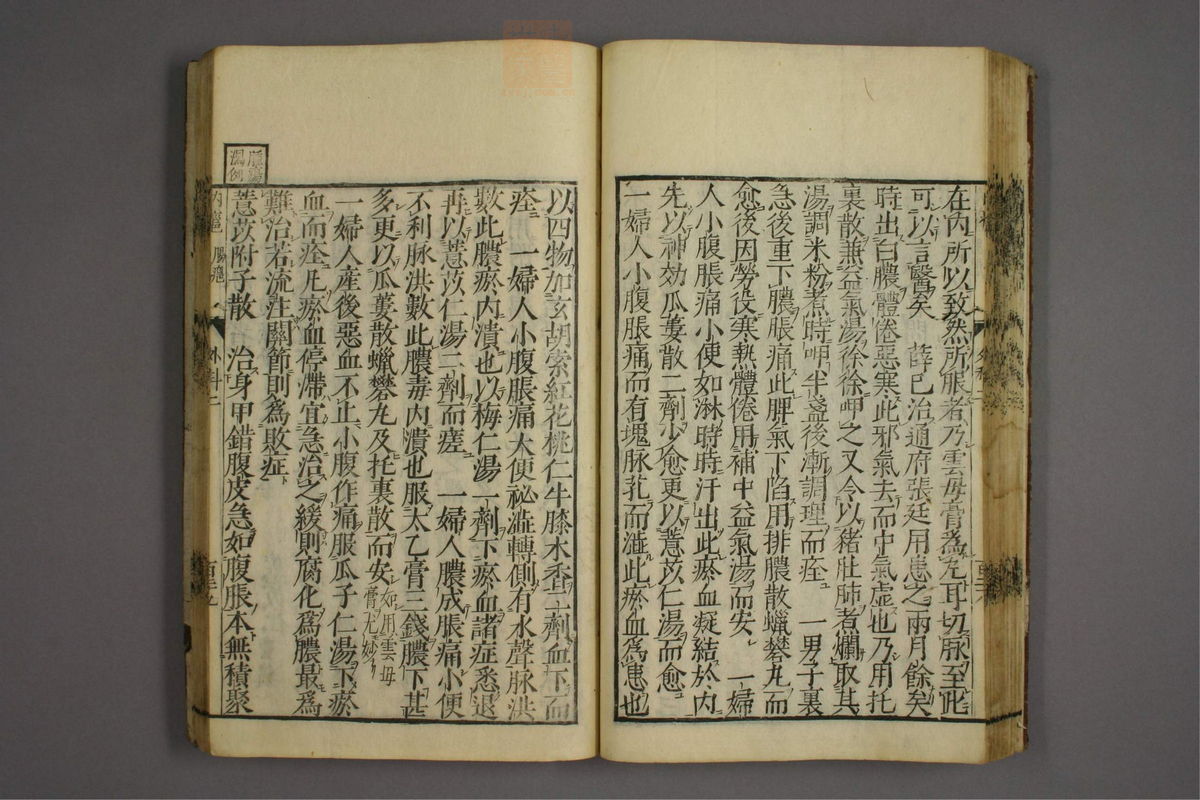 在內所以致然所服者乃雲母膏爲丸耳切脉至此
可以言醫矣　薛已治通府張廷用患之兩月餘矣
時出白膿體倦惡寒此邪氣去而中氣虛也乃用托
裏散兼益氣湯徐徐呷之又令以猪肚肺煮爛取其
湯調米粉煮時呷半盞後漸調理而痊　一男子裏
急後重下膿脹痛此脾氣下陷用排膿散蠟礬丸而
愈後因勞役寒熱體倦用補中益氣湯而安　一婦
人小腹脹痛小便如淋時時汗出此瘀血凝結於內
先以神効瓜蔞散二劑少愈更以薏苡仁湯而愈
一婦人小腹脹痛而有塊脉芤而澁此瘀血爲患也
以四物加玄胡索紅花桃仁牛膝木香二劑血下而
痊　一婦人小腹脹痛大便祕澁轉側有水聲脉洪
數此膿瘀內潰也以梅仁湯一劑下瘀血諸症悉退
再以薏苡仁湯二劑而瘥　一婦人膿成脹痛小便
不利脉洪數此膿毒內潰也服太乙膏三錢膿下甚
多更以瓜蔞散蠟礬丸及托裏散而安如用雲母膏尤妙
一婦人產後惡血不止小腹作痛服瓜子仁湯下瘀
血而痊凡瘀血停滯宜急治之緩則腐化爲膿最爲
難治若流注關節則爲敗症
腸癰
渴例
薏苡附子散　治身甲錯腹皮急如腹脹本無積聚
內癰　腸癰　外科二　百三九